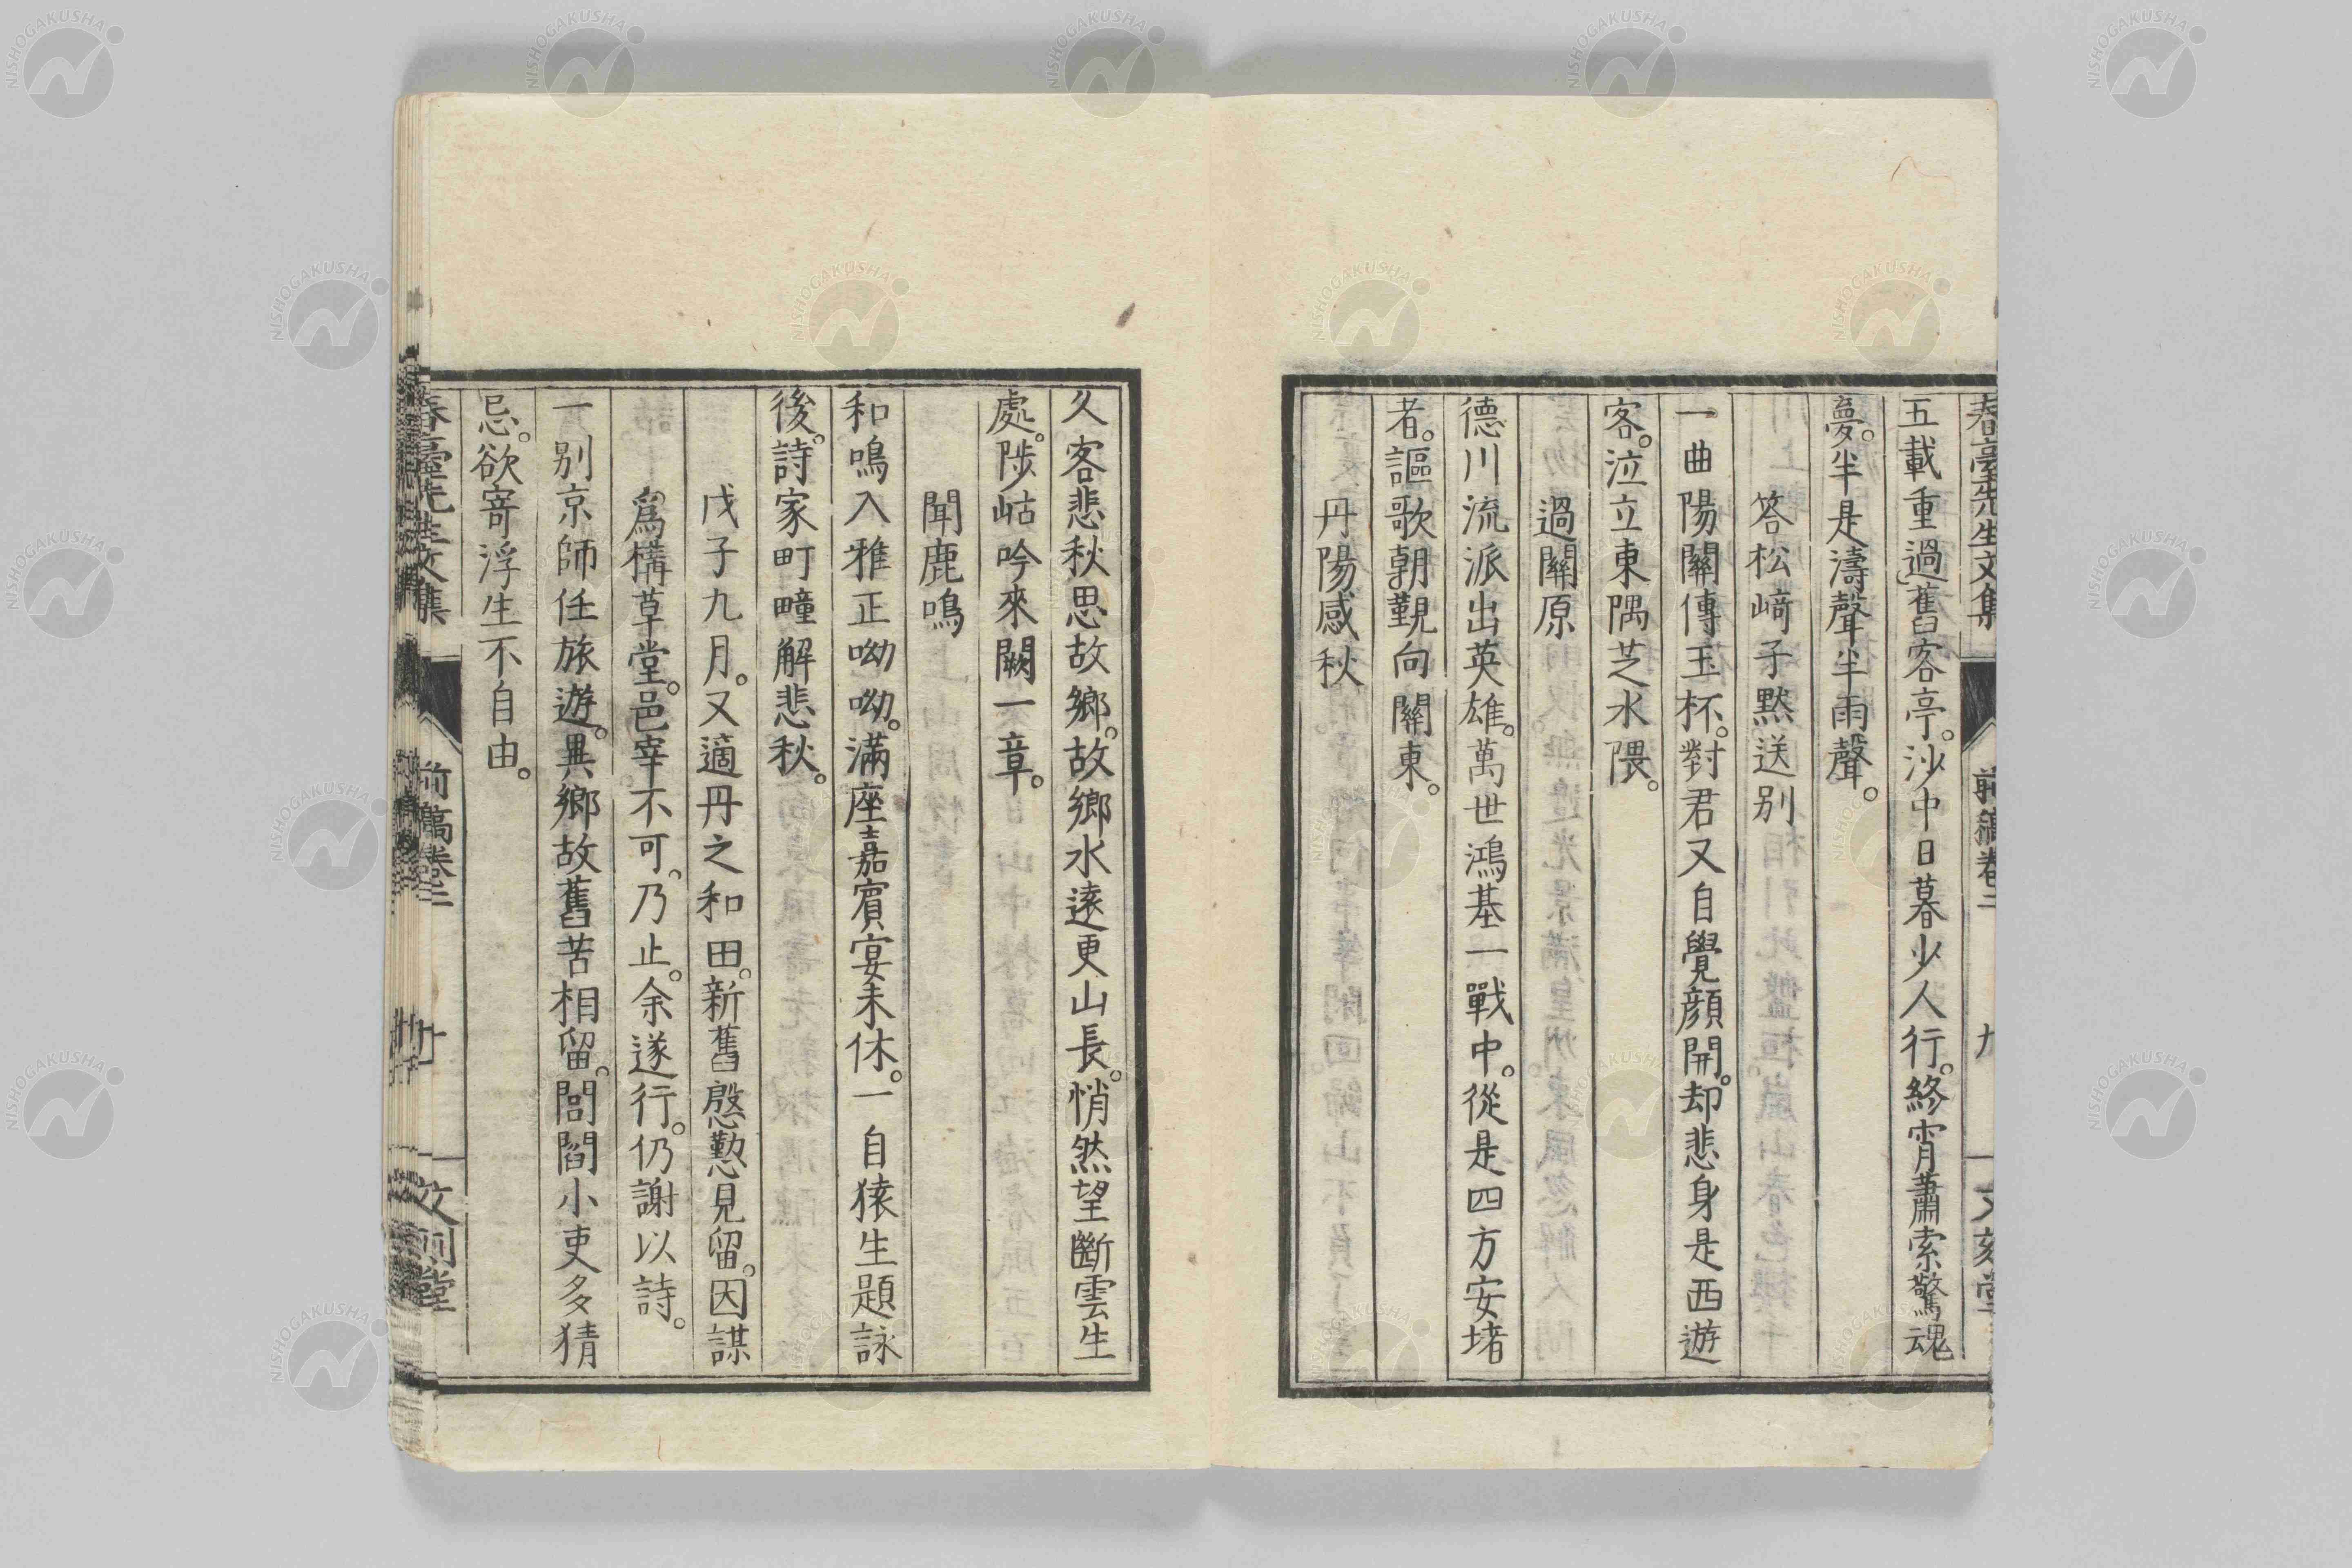 春臺先生文集 前稿卷二 九 文刻堂
五載重過舊客亭。沙中日暮少人行。終宵蕭索驚魂
夢。半是濤聲半雨聲。
答松﨑子黙送別
一曲陽關傳玉杯。對君又自覺顔開。却悲身是西遊
客。泣立東隅芝水隈。
過關原
德川流派出英雄。萬世鴻基一戰中。從是四方安堵
者。謳歌朝覲向關東。
丹陽感秋
久客悲秋思故鄉。故鄉水遠更山長。悄然望斷雲生
處。陟岵吟來闕一章。
聞鹿鳴
和鳴入雅正呦呦。滿座嘉賓宴未休。一自猿生題詠
後。詩家町疃解悲秋。
戊子九月。又適丹之和田。新舊慇懃見留。因謀
爲構草堂。邑宰不可。乃止。余遂行。仍謝以詩。
一別京師任旅遊。異鄉故舊苦相留。閭閻小吏多猜
忌。欲寄浮生不自由。
春臺先生文集 前稿卷二 十 文刻堂
NISHOGAKUSHA